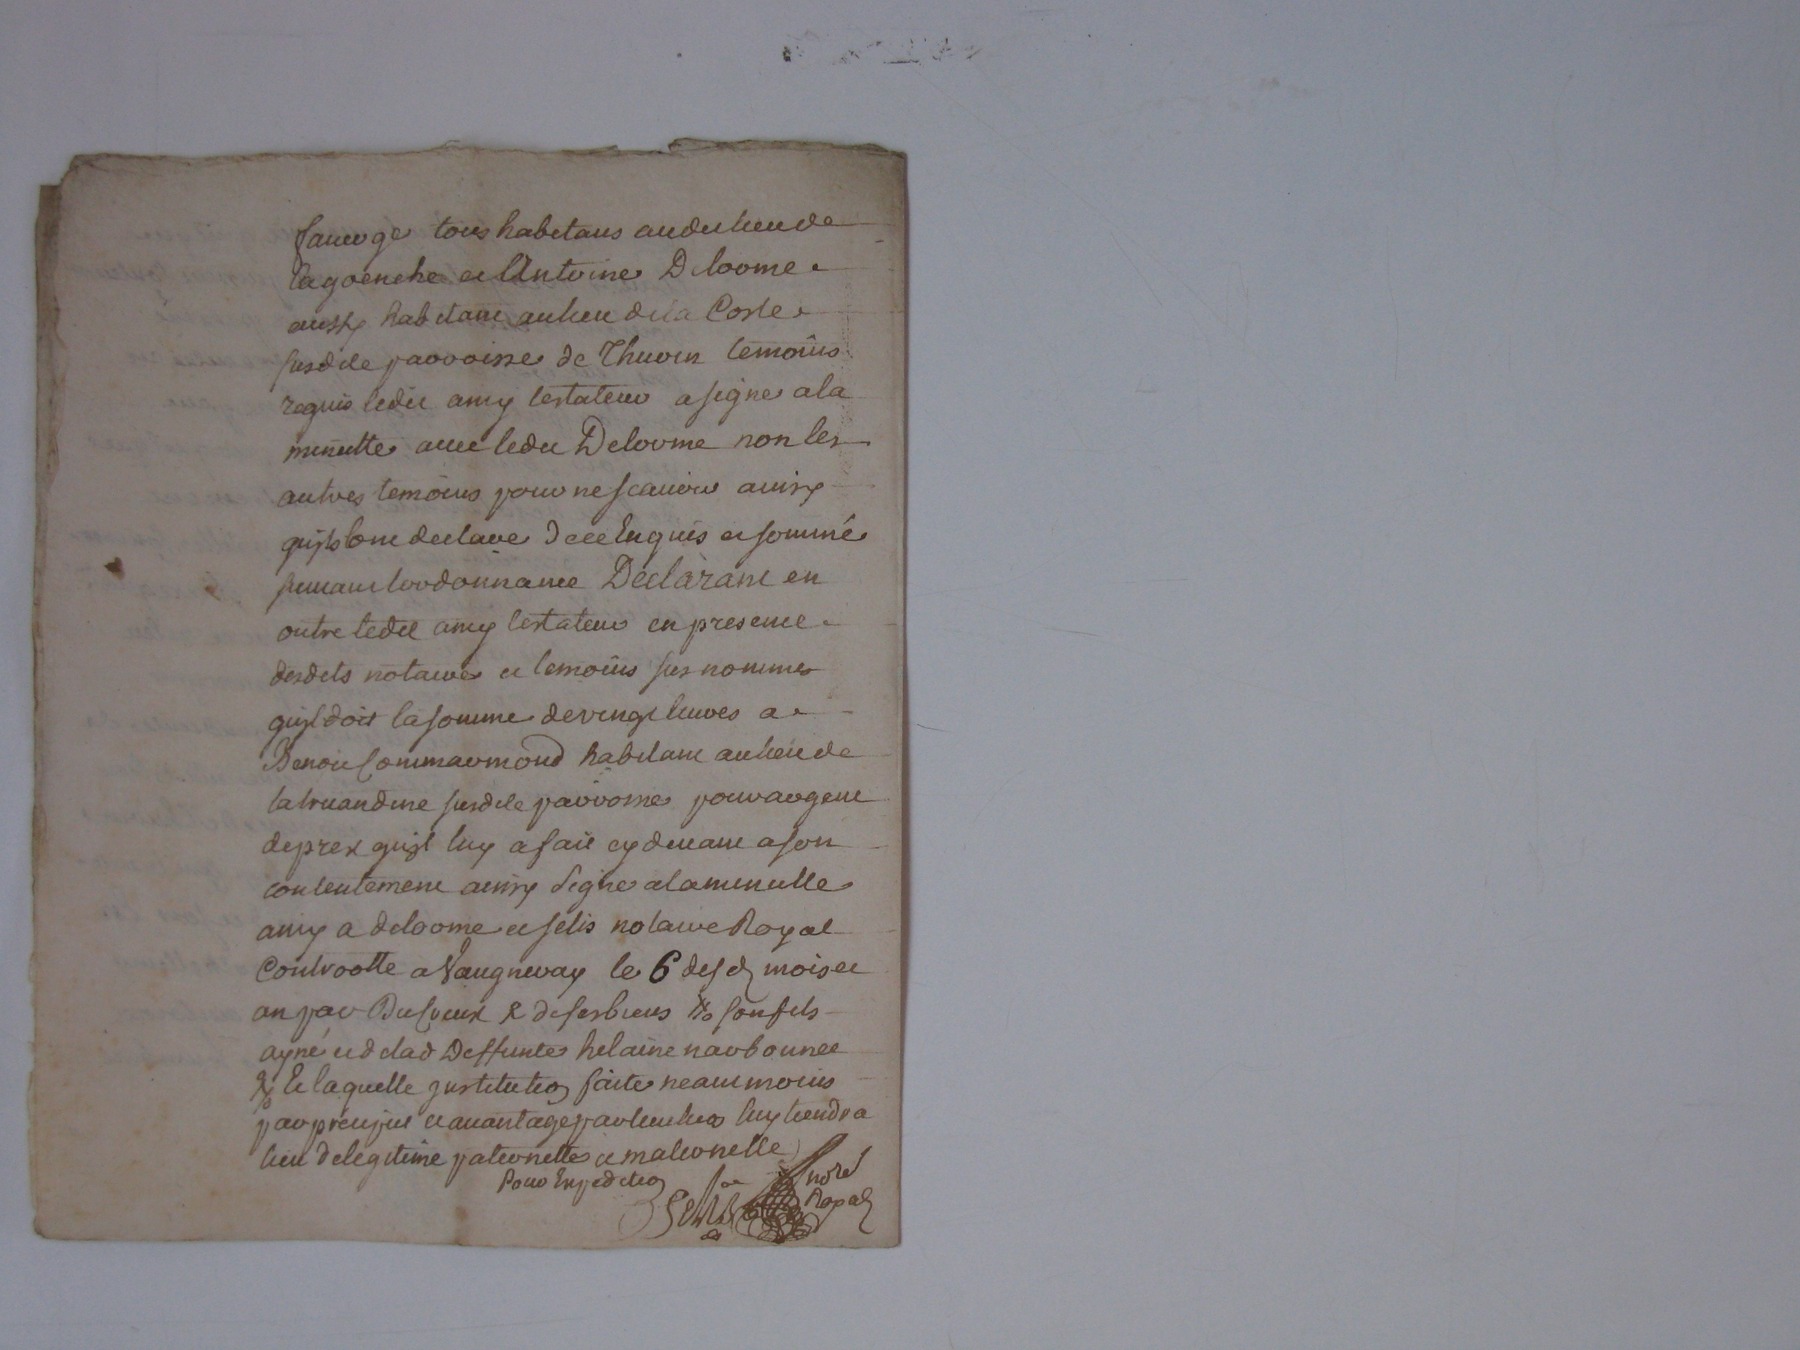 farorge tous habitans audit lieu de
lagoenche et Antoine Delorme
aussy habitant au lieu dela Coste
susdite parroisse de Thurin temoins
requis ledit amy testateur a signe a la
minutte avec ledit Delorme non les
autres temoins pour ne scavoir ainsy
quils lont declare de ce Enquis et sommé
suivant lordonnance Declarant en
outre ledit amy testateur en presence
desdits notaire et temoins sus nommes
quil doit la somme de vingt livres a
Benoit Commarmond habitant au lieu de
la bruandine susdite parroisse pour argent
de prex quil luy a fait cy devant a son
contentement ainsy Signe a la minutte
amy a delorme et selis notaire Royal
Controolle a Vaugneray le 6 desd mois et
an par & de ses biens son fils
ayné et de lad Deffunte helaine narbonnet
& laquelle justitution faite neanmoins
par preciput et avantage particulier luy tiendra
lieu de legitime paternelle et maternelle
Pour Expedition
notre
Royal